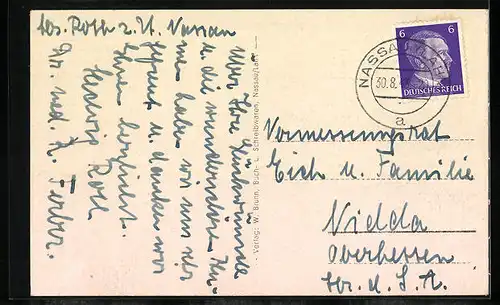 Bes. Roth z. Zt. Nassau
Über Ihre Glückwünsche
u. die wunderschöne
haben wir uns sehr
gefreut u. danken wir
Ihnen herzlichst.
Hedwig Roth
Dr. med. H.
- Verlag: W. Bruhn, Buch- u. Schreibwaren, Nassau/Lahn -
NASSAU (LAHN)
30.8.
a
6 6
DEUTSCHES REICH
Vermessungsrat
Eich u. Familie
Nidda
Oberhessen